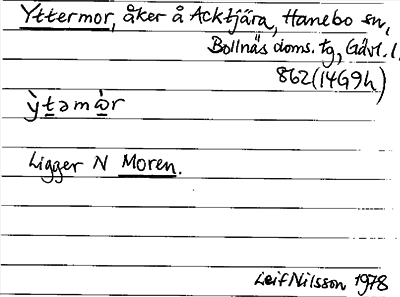 Yttermor, åker å Acktjära, Hanebo sn,
Bollnäs doms. tg, Gävl. l.
862(14G9h)
ỳtəmὼr
Ligger N Moren.
Leif Nilsson 1978